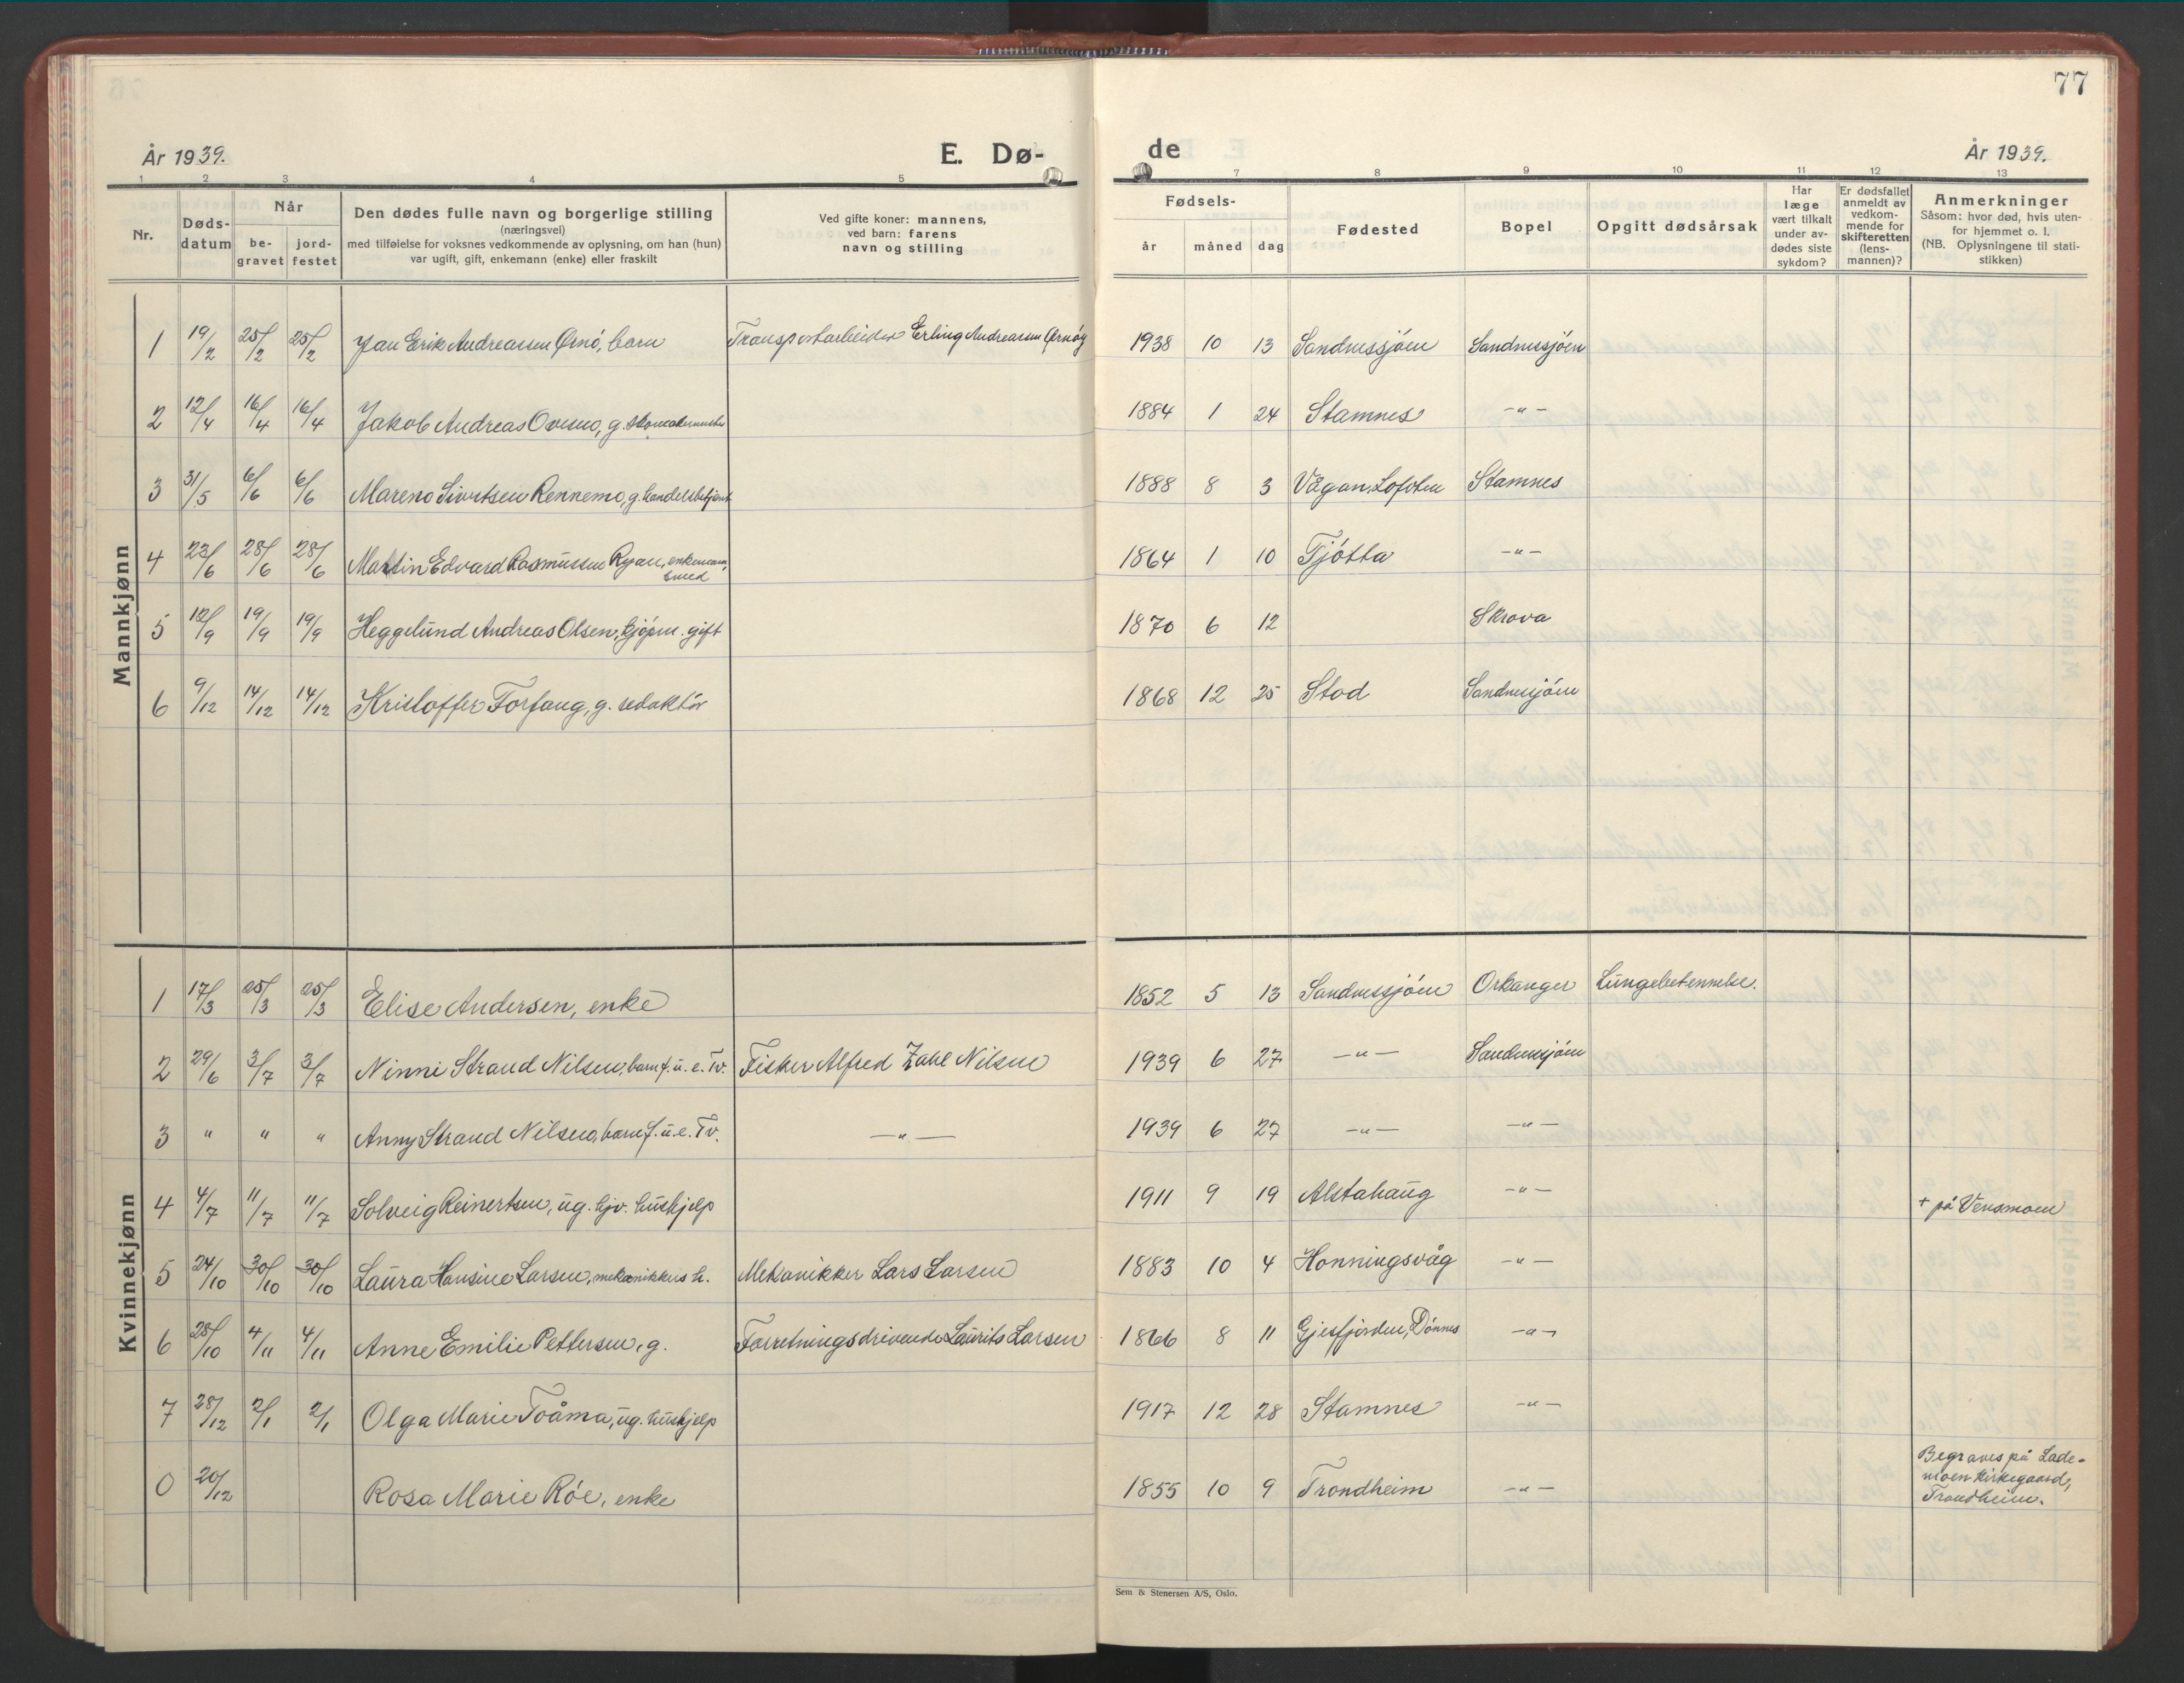 77
År 1939. E. Dø- de År 1939.
1 2 3 4 5 7 8 9 10 11 12 13
Nr.
Dødsdatum
Når
begravet
jordfestet
Den dødes fulle navn og borgerlige stilling
(næringsvei)
med tilføielse for voksnes vedkommende av oplysning, om han (hun)
var ugift, gift, enkemann (enke) eller fraskilt
Ved gifte koner: mannens,
ved barn: farens
navn og stilling
Fødsels-
år måned dag
Fødested
Bopel
Opgitt dødsårsak
Har
læge
vært tilkalt
under av-
dødes siste
sykdom?
Er dødsfallet
anmeldt av
vedkom-
mende for
skifteretten
(lens-
mannen)?
Anmerkninger
Såsom: hvor død, hvis uten-
for hjemmet o. l.
(NB. Oplysningene til stati-
stikken)
Mannkjønn
1 19/2 25/2 25/2 Jan Erik Andreassen Ørnó, barn Transportarbeider Erling Andreassen Ørnóy 1938 10 13 Sandnessjóen Sandnessjóen
2 12/4 16/4 16/4 Jakob Andreas Ovesen, g. skomakermester 1884 1 24 Stamnes -"-
3 31/5 6/6 6/6 Mareno Sivertsen Rennemo, g. handelsbetjent 1888 8 3 Vågan, Lofoten Stamnes
4 23/6 28/6 28/6 Martin Edvard Rasmussen Ryan, enkemann, smed 1864 1 10 Tjótta -"-
5 12/9 19/9 19/9 Heggelund Andreas Olsen, kjópm. gift 1870 6 12 Skrova
6 9/12 14/12 14/12 Kristoffer Forfang, g. redaktór 1868 12 25 Stod Sandnessjóen
Kvinnekjønn
1 17/3 25/3 25/3 Elise Andersen, enke 1852 5 13 Sandnessjóen Orkanger Lungebetennelse.
2 29/6 3/7 3/7 Ninni Strand Nilsen, barn f. u. e. Tv. Fisker Alfred Zahl Nilsen 1939 6 27 -"- Sandnessjóen
3 " " " Anny Strand Nilsen, barn f. u. e. Tv. -"- 1939 6 27 -"- -"-
4 4/7 11/7 11/7 Solveig Reinertsen, ug. hjv. hushjelp 1911 9 19 Alstahaug -"- + på Vensmoen
5 24/10 30/10 30/10 Laura Hansine Larsen, mekanikkers h. Mekanikker Lars Larsen 1883 10 4 Honningsvåg -"-
6 28/10 4/11 4/11 Anne Emilie Pettersen, g. Forretningsdrivende Laurits Larsen 1866 8 11 Gjesfjorden, Dónnes -"-
7 28/12 2/1 2/1 Olga Marie Toåma, ug. hushjelp 1917 12 28 Stamnes -"-
0 20/12 Rosa Marie Róe, enke 1855 10 9 Trondheim -"- Begraves på Lade-
moen kirkegaard,
Trondheim.
Sem & Stenersen A/S, Oslo.